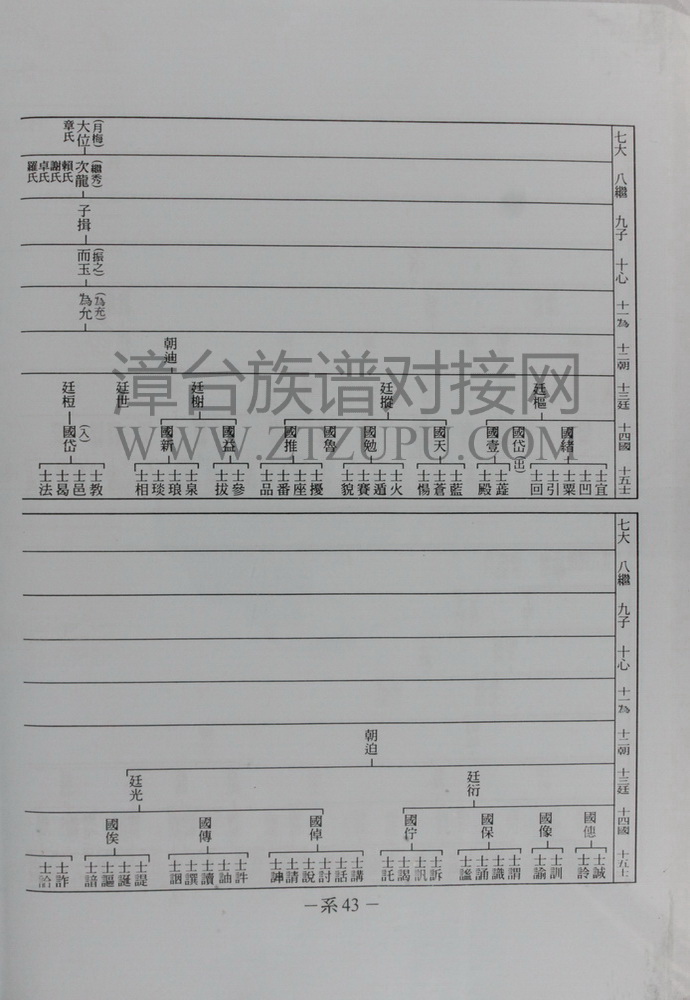 七大
八繼
九子
十心
十一為
十二朝
十三廷
十四國
十五士
(月梅)
大位
章氏
(繼秀)
次龍
賴氏
謝氏
卓氏
羅氏
子揖
(振之)
而玉
(為充)
為允
朝迪
廷樞
廷樅
廷榭
廷世
廷桓
國緒
國岱(出)
國壹
國天
國勉
國魯
國推
國益
國新
國岱(入)
士宜
士凹
士粟
士引
士回
士殿
士藍
士蒼
士惕
士火
士遁
士賽
士貌
士擾
士座
士番
士品
士參
士拔
士泉
士琅
士琰
士相
士教
士邑
士曷
士法
七大
八繼
九子
十心
十一為
十二朝
十三廷
十四國
十五士
朝迫
廷衍
廷光
國像
國保
國佇
國倬
國傳
國俟
士誠
士訓
士諭
士謂
士識
士誦
士謐
士訴
士訊
士謁
士託
士講
士話
士討
士說
士請
士讀
士譔
士諟
士誕
士謳
士諳
士詐
士詥
漳台族谱对接网
WWW.ZTZUPU.COM
－系 43－